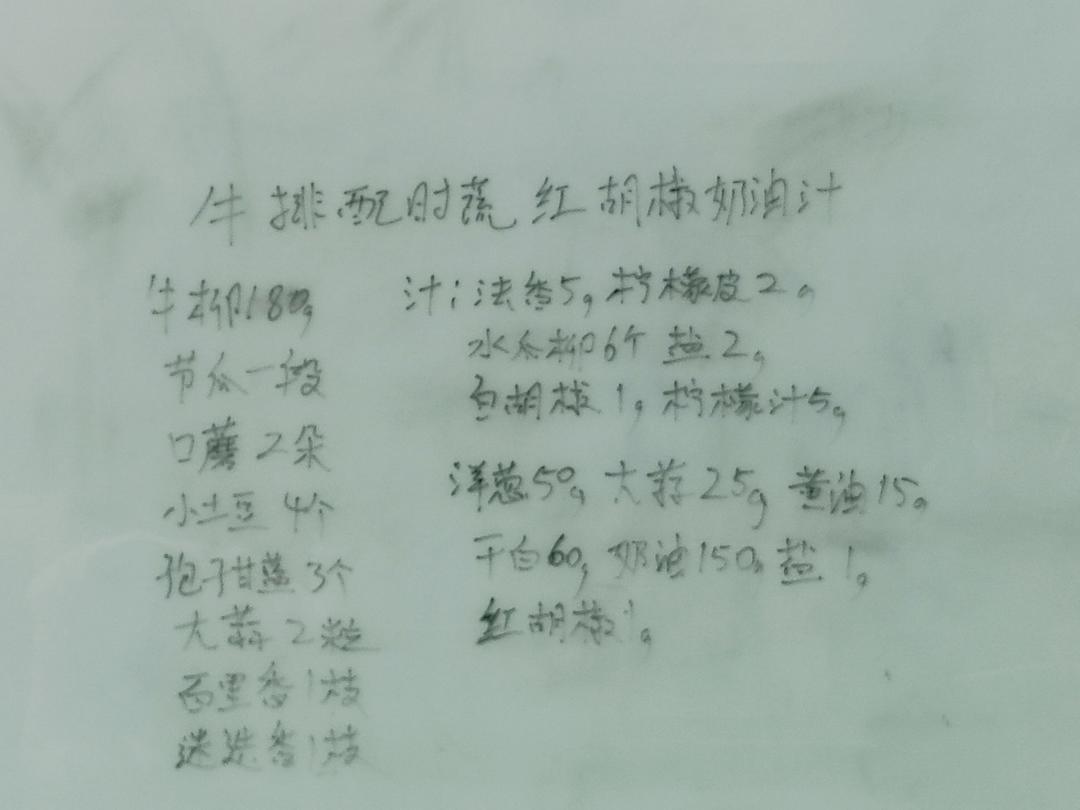 牛排配时蔬 红胡椒奶油汁
牛柳180g
节瓜一段
口蘑2朵
小土豆4个
孢子甘蓝3个
大蒜2粒
百里香1枝
迷迭香1枝
汁:法香5g 柠檬皮2g
水瓜柳6个 盐2g
白胡椒1g 柠檬汁5g
洋葱50g 大蒜25g 黄油15g
干白60g 奶油150g 盐1g
红胡椒1g